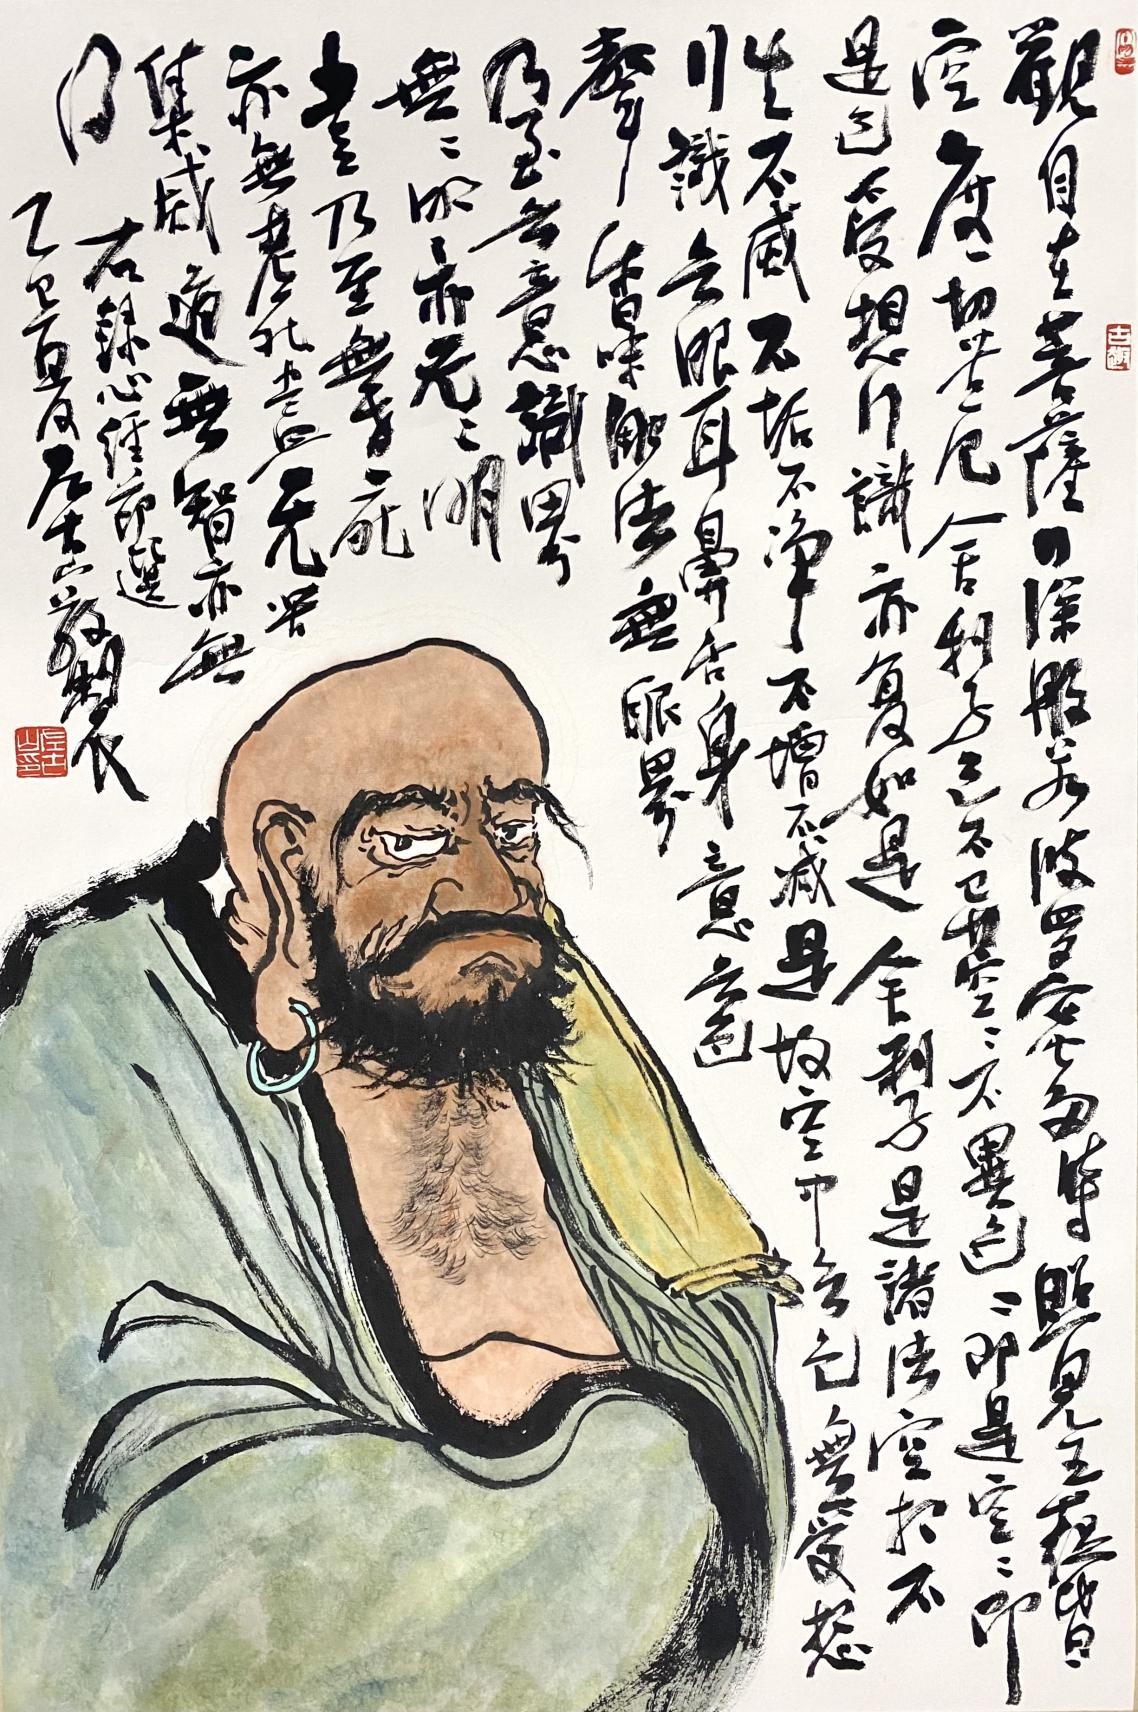 觀自在菩薩行深般若波羅蜜多時照見五蘊皆
空度一切苦厄舍利子色不異空〻不異色〻即是空〻即
是色受想行識亦復如是舍利子是諸法空相不
生不滅不垢不淨不增不減是故空中无色無受想
行識无眼耳鼻舌身意无色
聲香味觸法無眼界
乃至无意識界
無〻明亦无〻明
盡乃至無老死
亦無老死盡无苦
集滅道無智亦無
得
右錄心經節選
乙巳夏月左古山敬製
古趣
左古山印